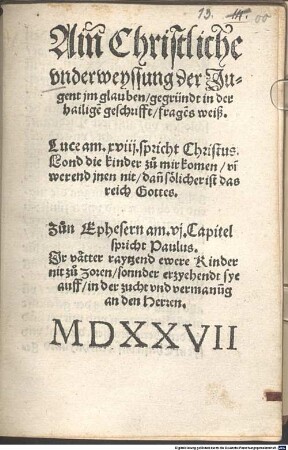 19. 00
Ain Christliche
vnderweyssung der Ju-
gent jm glauben/gegründt in der
hailigē geschrifft/fragēs weiß.
Luce am. xviij. spricht Christus.
Lond die kinder zů mir komen/vñ
werend jnen nit/dañ sölicher ist das
reich Gottes.
Zůn Ephesern am. vj. Capitel
spricht Paulus.
Ir vätter raytzend ewere Kinder
nit zů Zoren/sonnder erzyehendt sye
auff/in der zucht vnd vermanūg
an den Herren.
MDXXVII